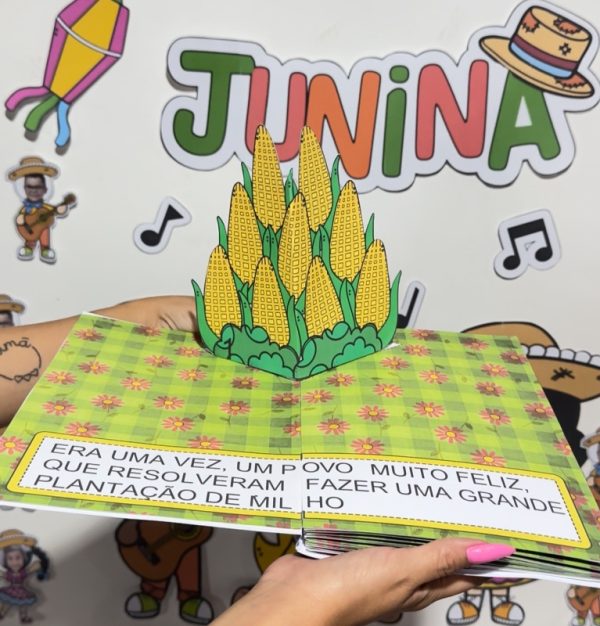 JUNINA
ERA UMA VEZ, UM POVO MUITO FELIZ,
QUE RESOLVERAM FAZER UMA GRANDE
PLANTAÇÃO DE MILHO